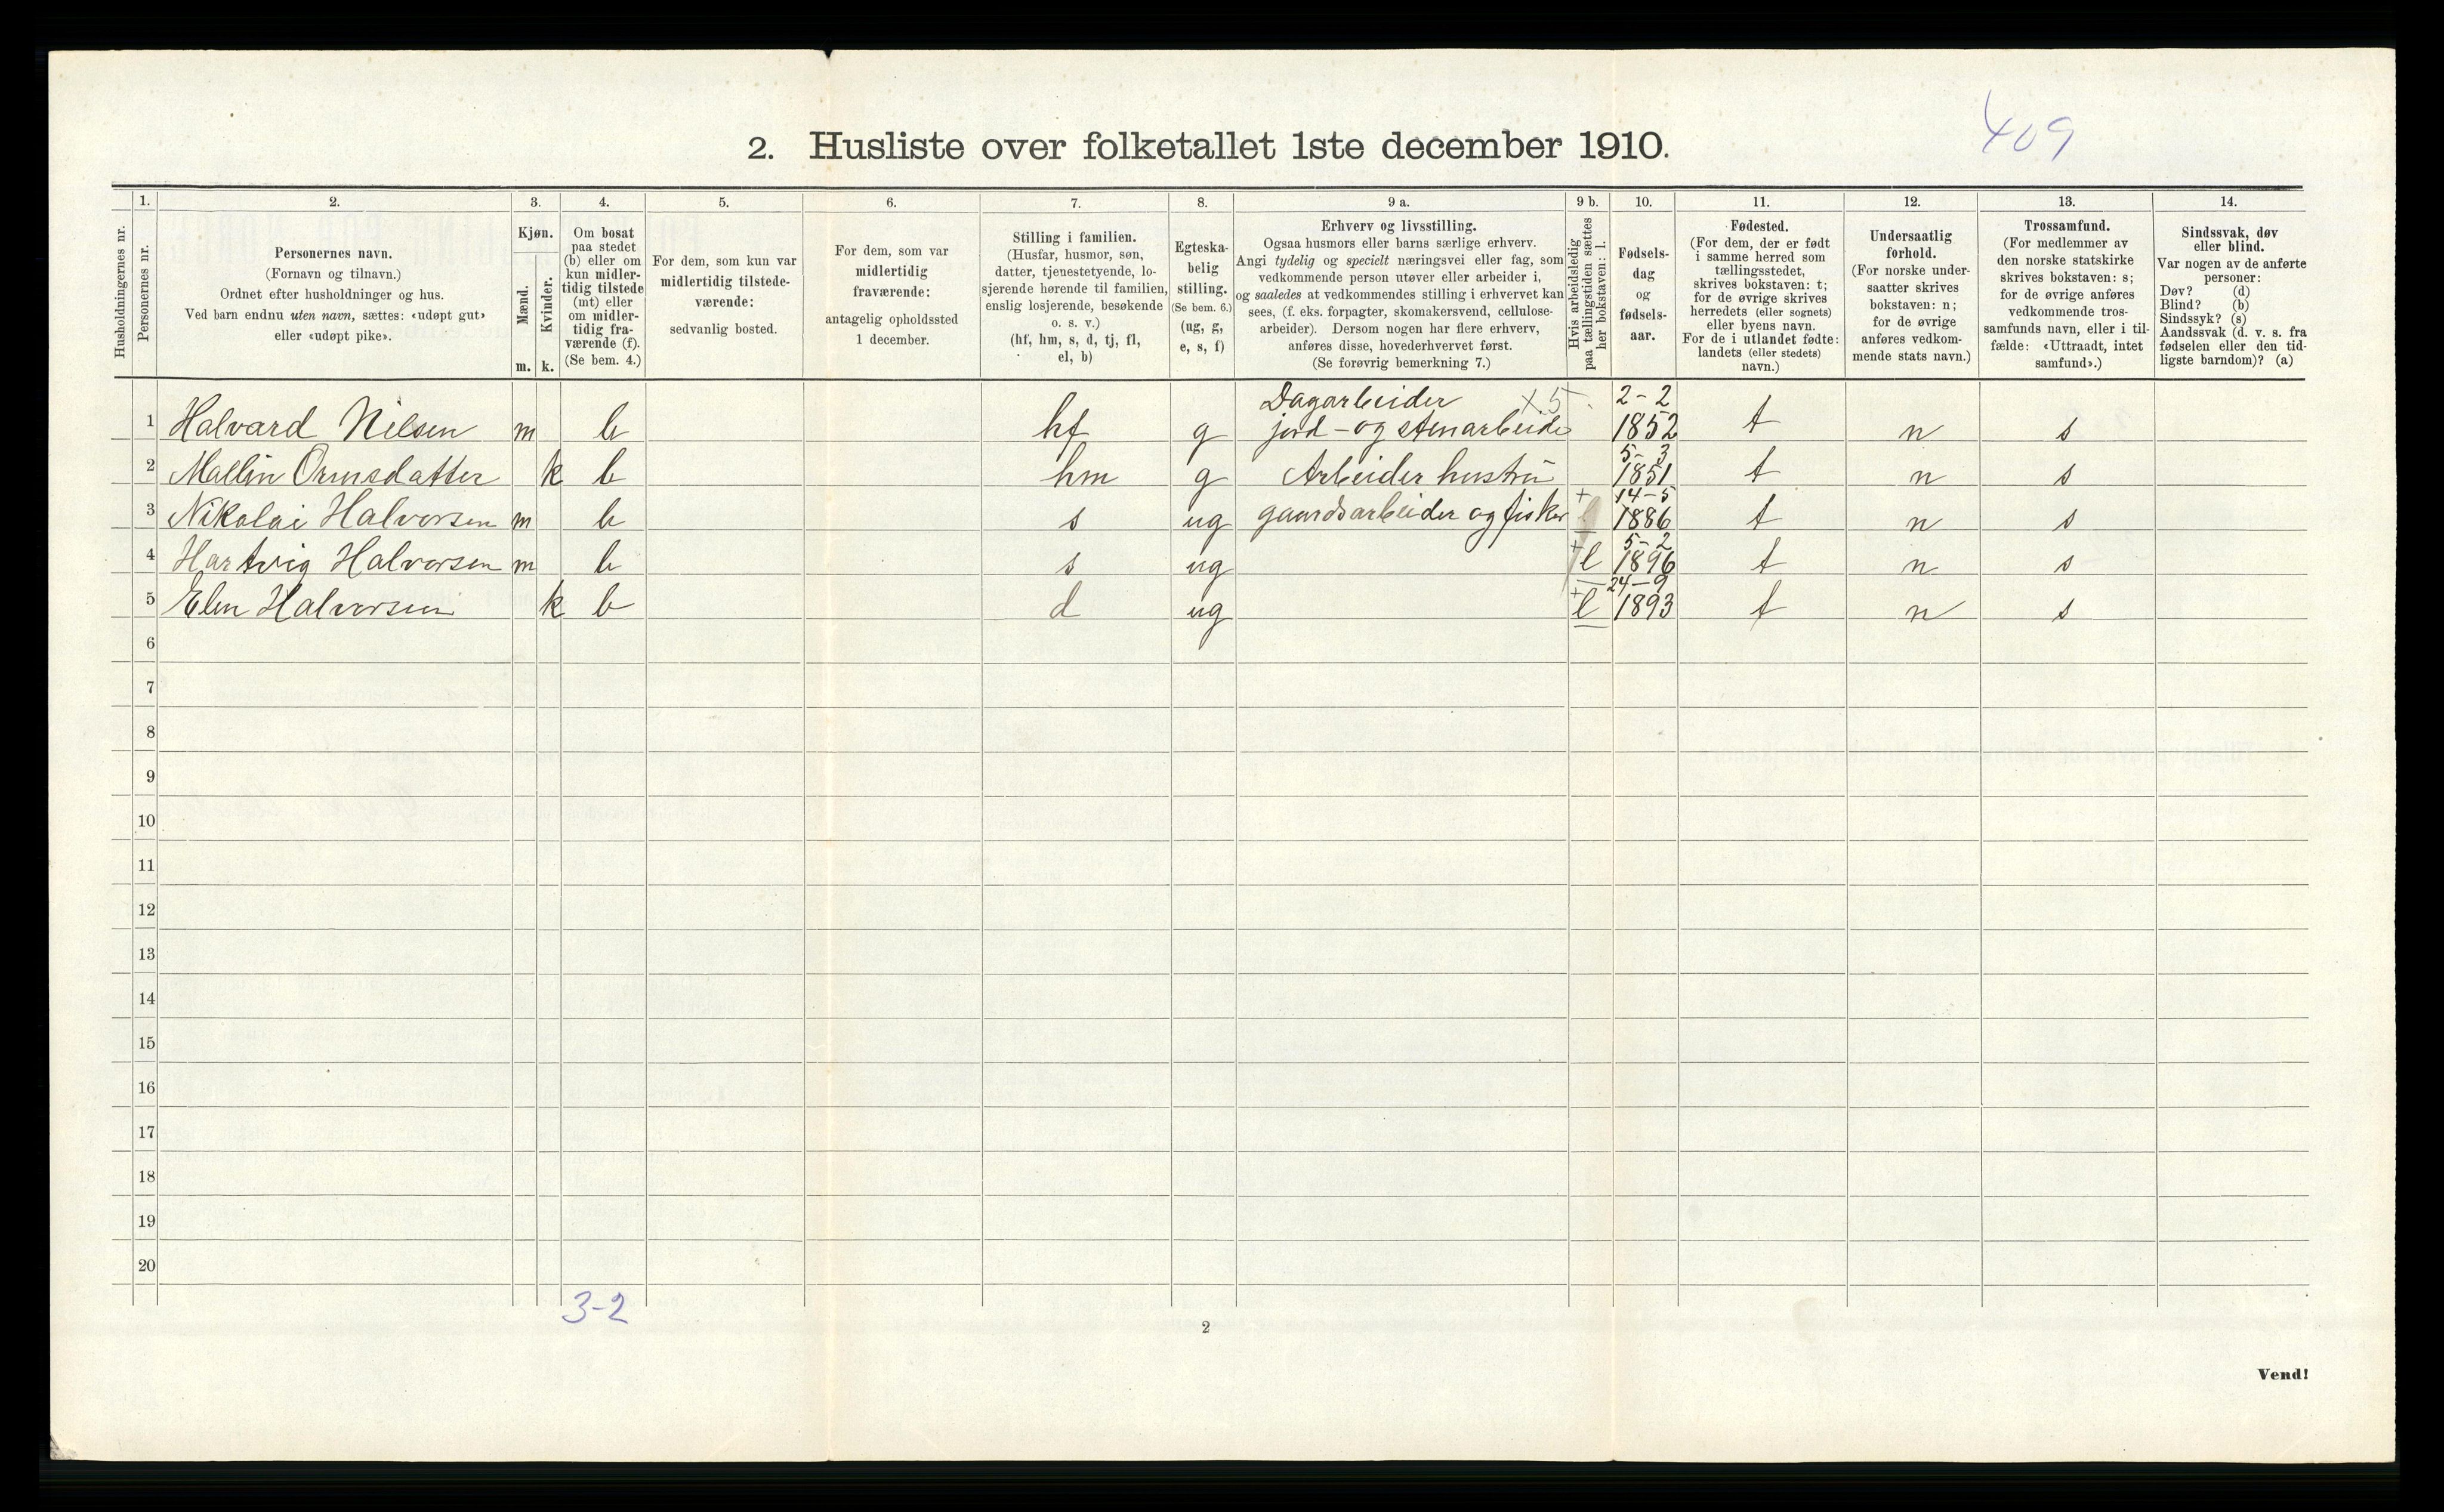 409
2. Husliste over folketallet 1ste december 1910.
1. 2. 3. 4. 5. 6. 7. 8. 9 a. 9 b. 10. 11. 12. 13. 14.
Husholdningernes nr.
Personernes nr.
Personernes navn.
(Fornavn og tilnavn.)
Ordnet efter husholdninger og hus.
Ved barn endnu uten navn, sættes: «udøpt gut»
eller «udøpt pike».
Kjøn.
Mænd.
Kvinder.
m. k.
Om bosat
paa stedet
(b) eller om
kun midler-
tidig tilstede
(mt) eller
om midler-
tidig fra-
værende (f).
(Se bem. 4.)
For dem, som kun var
midlertidig tilstede-
værende:
sedvanlig bosted.
For dem, som var
midlertidig
fraværende:
antagelig opholdssted
1 december.
Stilling i familien.
(Husfar, husmor, søn,
datter, tjenestetyende, lo-
sjerende hørende til familien,
enslig losjerende, besøkende
o. s. v.)
(hf, hm, s, d, tj, fl,
el, b)
Egteska-
belig
stilling.
(Se bem. 6.)
(ug, g,
e, s, f)
Erhverv og livsstilling.
Ogsaa husmors eller barns særlige erhverv.
Angi tydelig og specielt næringsvei eller fag, som
vedkommende person utøver eller arbeider i,
og saaledes at vedkommendes stilling i erhvervet kan
sees, (f. eks. forpagter, skomakersvend, cellulose-
arbeider). Dersom nogen har flere erhverv,
anføres disse, hovederhvervet først.
(Se forøvrig bemerkning 7.)
Hvis arbeidsledig
paa tællingstiden sættes
her bokstaven: l.
Fødsels-
dag
og
fødsels-
aar.
Fødested.
(For dem, der er født
i samme herred som
tællingsstedet,
skrives bokstaven: t;
for de øvrige skrives
herredets (eller sognets)
eller byens navn.
For de i utlandet fødte:
landets (eller stedets)
navn.)
Undersaatlig
forhold.
(For norske under-
saatter skrives
bokstaven: n;
for de øvrige
anføres vedkom-
mende stats navn.)
Trossamfund.
(For medlemmer av
den norske statskirke
skrives bokstaven: s;
for de øvrige anføres
vedkommende tros-
samfunds navn, eller i til-
fælde: «Uttraadt, intet
samfund».)
Sindssvak, døv
eller blind.
Var nogen av de anførte
personer:
Døv? (d)
Blind? (b)
Sindssyk? (s)
Aandssvak (d. v. s. fra
fødselen eller den tid-
ligste barndom)? (a)
Dagarbeider x 5 2-2
1 Halvard Nilsen m b hf g jord-og stenarbeide 1852 t n s
5-3
2 Mallin Ormsdatter k b hm g Arbeider hustru 1851 t n s
+ 14-5
3 Nikolai Halvorsen m b s ug gaardsarbeider og fisker l 1886 t n s
+ 5-2
4 Hartvig Halvorsen m b s ug l 1896 t n s
+ 24-9
5 Elen Halvorsen k b d ug l 1893 t n s
6
7
8
9
10
11
12
13
14
15
16
17
18
19
20
3-2
2
Vend!